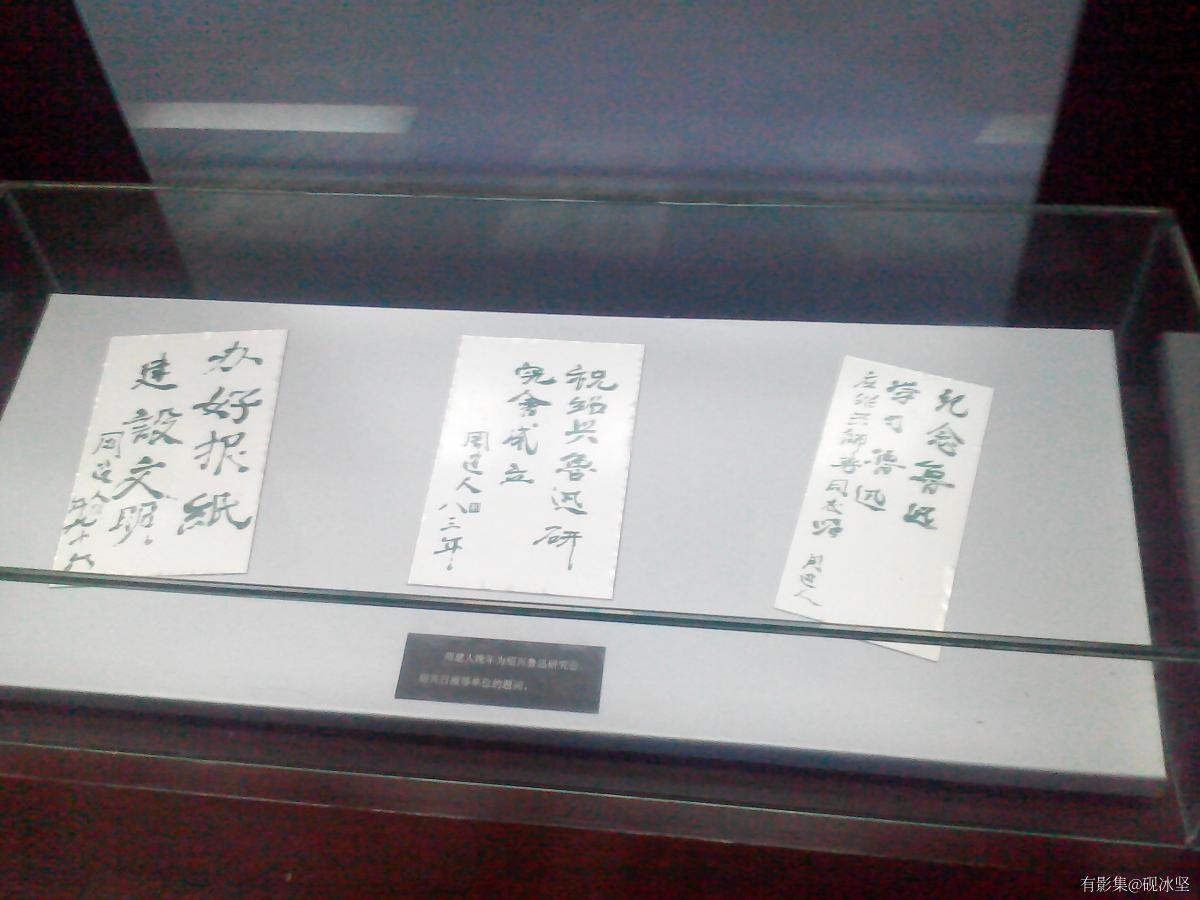 办好报紙
建設文明。
周建人
年九十六
祝紹兴魯迅研
究會成立
周建人
八三年。
纪念魯迅
学习魯迅
師専同志嘱
周建人
周建人晚年为绍兴鲁迅研究会、
绍兴日报等单位的题词。
有影集@砚冰坚